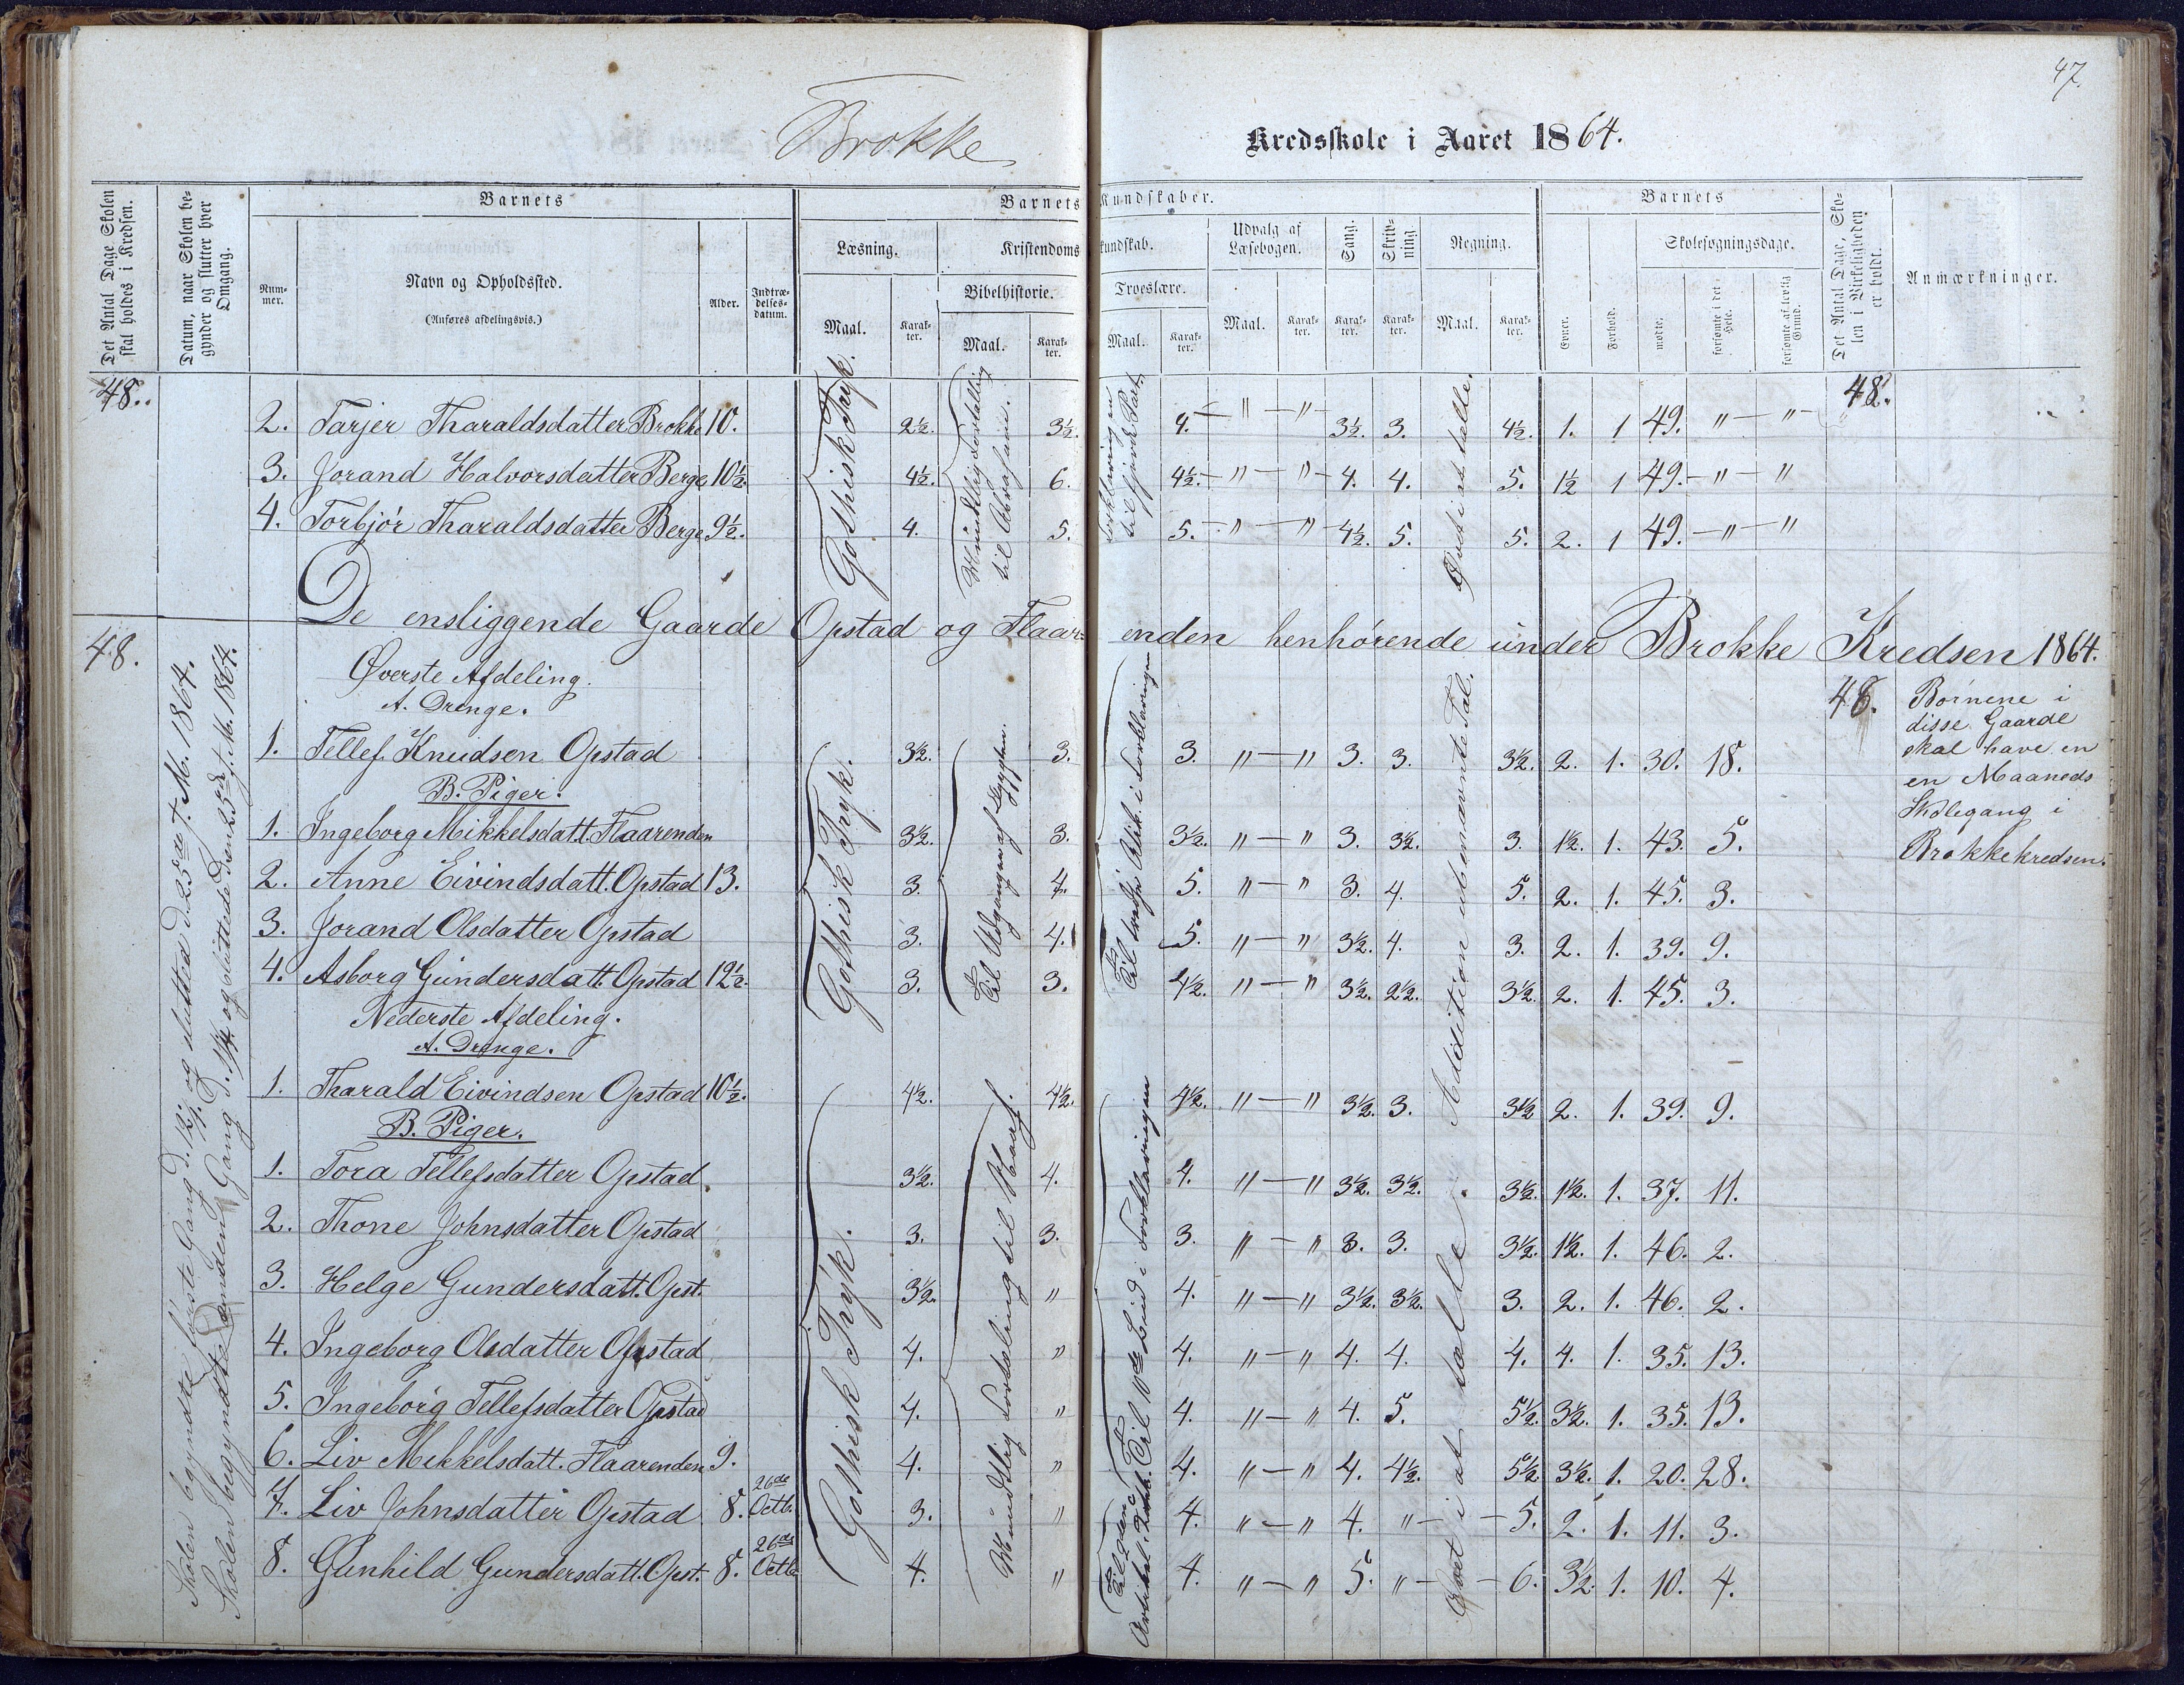 47.
Brokke Kredsskole i Aaret 1864.
Det Antal Dage Skolen skal holdes i Kredsen.
Datum, naar Skolen begynder og slutter hver Omgang.
Barnets
Nummer.
Navn og Opholdssted.
(Anføres afdelingsvis.)
Alder.
Indtrædelsesdatum.
Barnets Kundskaber.
Læsning.
Maal.
Karakter.
Kristendomskundskab.
Bibelhistorie.
Maal.
Karakter.
Troeslære.
Maal.
Karakter.
Udvalg af Læsebogen.
Maal.
Karakter.
Sang.
Karakter.
Skrivning
Karakter.
Regning.
Maal.
Karakter.
Barnets
Evner.
Forhold.
Skolesøgningsdage.
mødte.
forsømte i det Hele.
forsømte af lovlig Grund.
Det Antal Dage, Skolen i Virkeligheden er holdt.
Anmærkninger.
48.
48.
Gothisk Tryk.
Mundtlig Fortælling til Abrahám.
Forklaring en til fjerde Part.
Øvet i at tælle.
2. Tarjer Tharaldsdatter Brokke 10. 2½. 3½. 4. – " – " – 3½. 3. 4½. 1. 1 49. " – " –
3. Jorand Halvorsdatter Berge 10½. 4½. 6. 4½. – " – " – 4. 4. 5. 1½ 1 49. – " – "
4. Torbjór Tharaldsdatter Berge 9½. 4. 5. 5. – " – " – 4½. 5. 5. 2. 1 49. – " – "
De ensliggende Gaarde Opstad og Flaarenden henhørende under Brokke Kredsen 1864.
48.
Skolen begyndte første Gang d. 12/1. og slutted d. 25de f. M. 1864.
Skolen begyndte anden Gang d. 1/4. og sluttede den 25de f. M. 1864.
Øverste Afdeling.
A. Drenge.
48.
Børnene i
disse Gaarde
skal have en
en Maaneds
Skolegang i
Brokkekredsen.
Gothisk Tryk.
Til Udgangen af Ægypten.
Til tredje Artik. i Forklaringen
Addition ubenævnte Tal.
1. Tellef Knudsen Opstad 3½. 3. 3. " – " 3. 3. 3½. 2. 1. 30. 18.
B. Piger.
1. Ingeborg Mikkelsdatt. Flaarenden 3½. 3. 3½. " – " 3. 3½. 3. 1½. 1. 43. 5.
2. Anne Eivindsdatt. Opstad 13. 3. 4. 5. " – " 3. 4. 5. 2. 1. 45. 3.
3. Jorand Olsdatter Opstad 3. 4. 5. " – " 3½. 4. 3. 2. 1. 39. 9.
4. Asborg Gundersdatt. Opstad 12½. 3. 3. 4½. " – " 3½. 2½. 3½. 2. 1. 45. 3.
Nederste Afdeling.
A. Drenge.
Gothisk Tryk.
Mundtlig Fortæling til
Til 10de Bud i Forklaringen
Øvet i at tælle.
1. Tharald Eivindsen Opstad 10½. 4½. 4½. 4½. " – " 3½. 3. 3½ 2. 1. 39. 9.
B. Piger.
1. Tora Tellefsdatter Opstad. 3½. 4. 4. " – " 3½. 3½. 3½. 1½. 1. 37. 11.
2. Thone Johnsdatter Opstad 3. 3. 3. " – " 3. 3. 3½. 1½. 1. 46. 2.
3. Helge Gundersdatt. Opst. 3½. " 4. " – " 3½. 3½. 3. 2. 1. 46. 2.
4. Ingeborg Olsdatter Opstad 4. " 4. " – " 4. 4. 4. 4. 1. 35. 13.
5. Ingeborg Tellefsdatter Opstad 4. " 4. " – " 4. 5. 5½. 3½. 1. 35. 13.
6. Liv Mikkelsdatt. Flaarenden 9. 4. " 4. " – " 4. 4½. 5½. 3½. 1. 20. 28.
7. Liv Johnsdatter Opstad 8. 26de Octb. 3. " 4. " – " 4. " – – 5. 2. 1. 11. 3.
8. Gunhild Gundersdatt. Opst. 8. 26de Octb 4. " 4. " – " 5. " – – 6. 3½. 1. 10. 4.